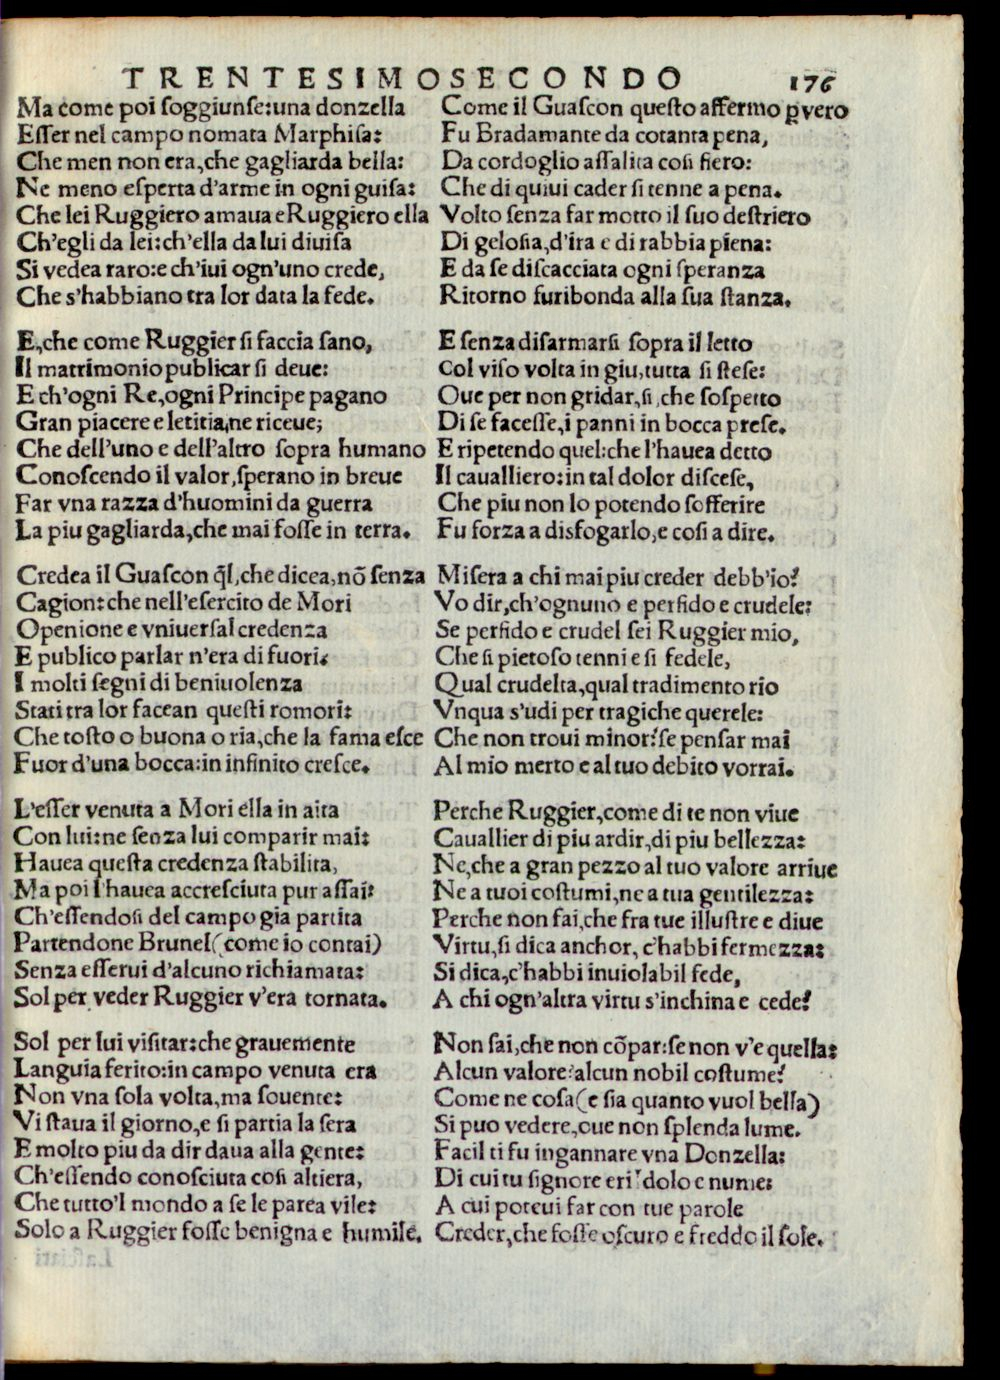 TRENTESIMOSECONDO 176
Ma come poi ſoggiunſe:una donzella
Eſſer nel campo nomata Marphiſa:
Che men non era,che gagliarda bella:
Ne meno eſperta d'arme in ogni guiſa:
Che lei Ruggiero amaua e Ruggiero ella
Ch'egli da lei:ch'ella da lui diuiſa
Si vedea raro:e ch'iui ogn'uno crede,
Che s'habbiano tra lor data la fede.
E,che come Ruggier ſi faccia ſano,
Il matrimonio publicar ſi deue:
E ch'ogni Re,ogni Principe pagano
Gran piacere e letitia,ne riceue;
Che dell'uno e dell'altro ſopra humano
Conoſcendo il valor,ſperano in breue
Far vna razza d'huomini da guerra
La piu gagliarda,che mai foſſe in terra.
Credea il Guaſcon q̃l,che dicea,nõ ſenza
Cagion:che nell'eſercito de Mori
Openione e vniuerſal credenza
E publico parlar n'era di fuori.
I molti ſegni di beniuolenza
Stati tra lor facean queſti romori:
Che toſto o buona o ria,che la fama eſce
Fuor d'una bocca:in infinito creſce.
L'eſſer venuta a Mori ella in aita
Con lui:ne ſenza lui comparir mai:
Hauea queſta credenza ſtabilita,
Ma poi l'hauea accreſciuta pur aſſai:
Ch'eſſendoſi del campo gia partita
Partendone Brunel(come io contai)
Senza eſſerui d'alcuno richiamata:
Sol per veder Ruggier v'era tornata.
Sol per lui viſitar:che grauemente
Languia ferito:in campo venuta era
Non vna ſola volta,ma ſouente:
Vi ſtaua il giorno,e ſi partia la ſera
E molto piu da dir daua alla gente:
Ch'eſſendo conoſciuta coſi altiera,
Che tutto'l mondo a ſe le parea vile:
Solo a Ruggier foſſe benigna e humile.
Come il Guaſcon queſto affermo ꝑ vero
Fu Bradamante da cotanta pena,
Da cordoglio aſſalita coſi fiero:
Che di quiui cader ſi tenne a pena.
Volto ſenza far motto il ſuo deſtriero
Di geloſia,d'ira e di rabbia piena:
E da ſe diſcacciata ogni ſperanza
Ritorno furibonda alla ſua ſtanza.
E ſenza diſarmarſi ſopra il letto
Col viſo volta in giu,tutta ſi ſteſe:
Oue per non gridar,ſi,che ſoſpetto
Di ſe faceſſe,i panni in bocca preſe.
E ripetendo quel:che l'hauea detto
Il caualliero:in tal dolor diſceſe,
Che piu non lo potendo ſofferire
Fu forza a disfogarlo,e coſi a dire.
Miſera a chi mai piu creder debb'io?
Vo dir,ch'ognuno e perfido e crudele:
Se perfido e crudel ſei Ruggier mio,
Che ſi pietoſo tenni e ſi fedele,
Qual crudelta,qual tradimento rio
Vnqua s'udi per tragiche querele:
Che non troui minor?ſe penſar mai
Al mio merto e al tuo debito vorrai.
Perche Ruggier,come di te non viue
Cauallier di piu ardir,di piu bellezza:
Ne,che a gran pezzo al tuo valore arriue
Ne a tuoi coſtumi,ne a tua gentilezza:
Perche non fai,che fra tue illuſtre e diue
Virtu,ſi dica anchor, c'habbi fermezza:
Si dica,c'habbi inuiolabil fede,
A chi ogn'altra virtu s'inchina e cede?
Non ſai,che non cõpar:ſe non v'e quella:
Alcun valore?alcun nobil coſtume?
Come ne coſa(e ſia quanto vuol bella)
Si puo vedere,oue non ſplenda lume.
Facil ti fu ingannare vna Donzella:
Di cui tu ſignore eri'dolo e nume:
A cui poteui far con tue parole
Creder,che foſſe oſcuro e freddo il ſole.